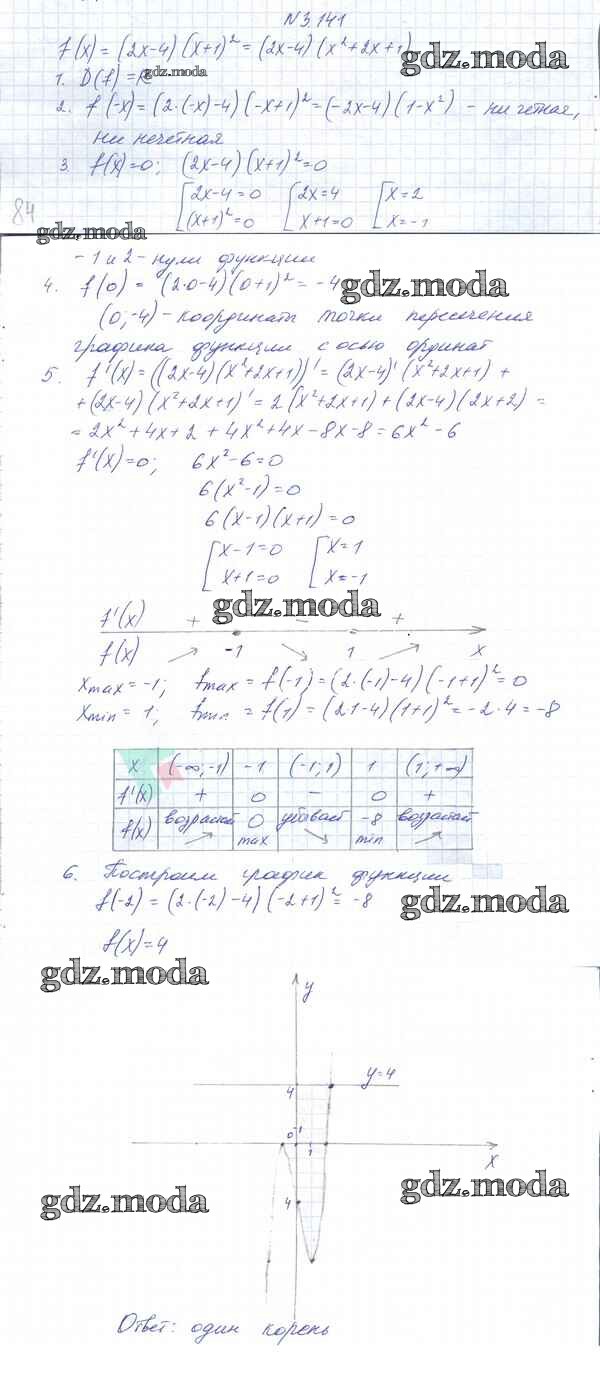 N 3.141
f(x) = (2x-4)(x+1)² = (2x-4)(x²+2x+1)
gdz.moda
1. D(f) = R
gdz.moda
2. f(-x) = (2·(-x)-4)(-x+1)² = (-2x-4)(1-x²) - ни четная,
ни нечётная
3. f(x)=0; (2x-4)(x+1)²=0
[2x-4=0 [2x=4 [x=2
(x+1)²=0 x+1=0 x=-1
84
gdz.moda
-1 и 2 - нули функции
4. f(0) = (2·0-4)(0+1)² = -4
gdz.moda
(0;-4) - координаты точки пересечения
графика функции с осью ординат
5. f'(x) = ((2x-4)(x²+2x+1))' = (2x-4)'(x²+2x+1) +
+(2x-4)(x²+2x+1)' = 2(x²+2x+1)+(2x-4)(2x+2) =
= 2x²+4x+2+4x²+4x-8x-8 = 6x²-6
f'(x)=0; 6x²-6=0
6(x²-1)=0
6(x-1)(x+1)=0
[x-1=0 [x=1
x+1=0 x=-1
gdz.moda
f'(x) + - +
f(x) -1 1 x
xmax = -1; fmax = f(-1) = (2·(-1)-4)(-1+1)² = 0
xmin = 1; fmin = f(1) = (2·1-4)(1+1)² = -2·4 = -8
x (-∞;-1) -1 (-1;1) 1 (1;+∞)
f'(x) + 0 - 0 +
f(x) возрастает 0 убывает -8 возрастает
max min
6. Построим график функции
f(-2) = (2·(-2)-4)(-2+1)² = -8
gdz.moda
f(x)=4
gdz.moda
y
y=4
4
0 1
1
x
4
gdz.moda
gdz.moda
Ответ: один корень